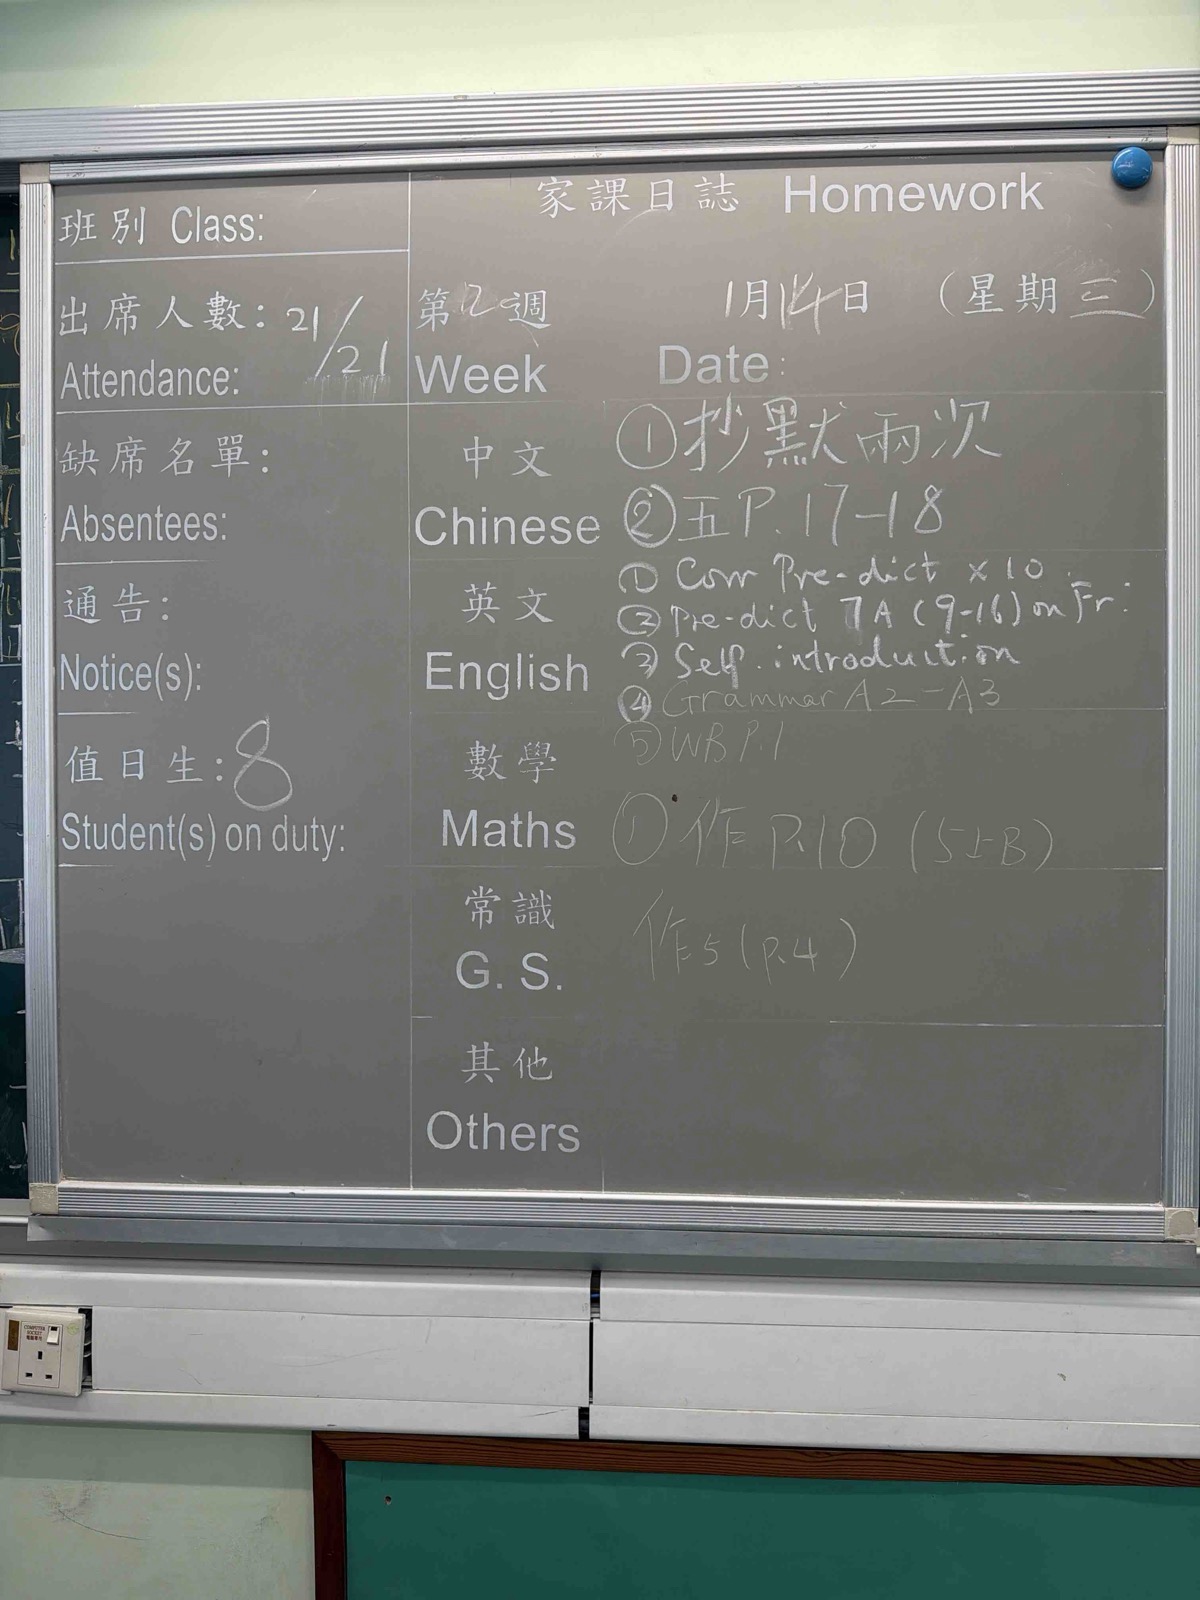 家課日誌 Homework
班別 Class:
出席人數: 21/21
Attendance:
第12週 1月14日 (星期三)
Week Date:
缺席名單:
Absentees:
通告:
Notice(s):
值日生: 8
Student(s) on duty:
中文
Chinese
①抄默兩次
②五P.17-18
英文
English
① Corr Pre-dict × 10
② Pre-dict 7A (9-16) on Fri
③ Self-introduction
④ Grammar A2-A3
⑤ WB P.1
數學
Maths
① 作 P.10 (5上B)
常識
G. S.
作5(p.4)
其他
Others
COMPUTER
SOCKET